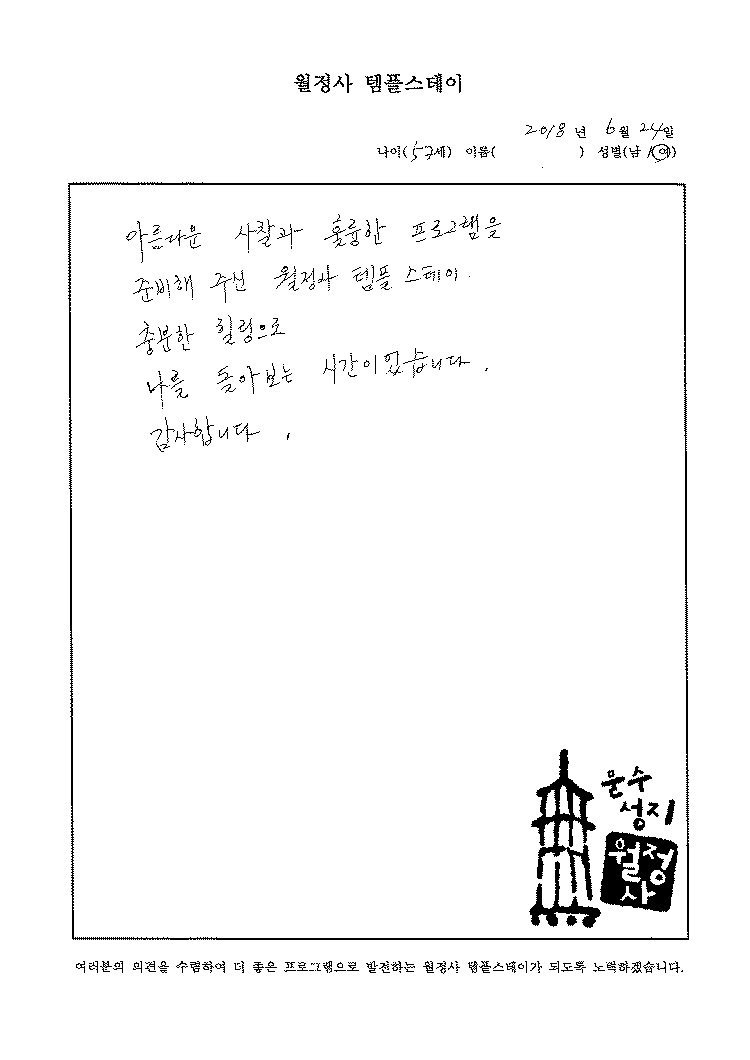 월정사 템플스테이
2018 년 6월 24일
나이(57세) 이름( ) 성별(남/여)
아름다운 사찰과 훌륭한 프로그램을
준비해 주신 월정사 템플스테이.
충분한 힐링으로
나를 돌아보는 시간이었습니다.
감사합니다.
문수
성지
월정
사
여러분의 의견을 수렴하여 더 좋은 프로그램으로 발전하는 월정사 템플스테이가 되도록 노력하겠습니다.